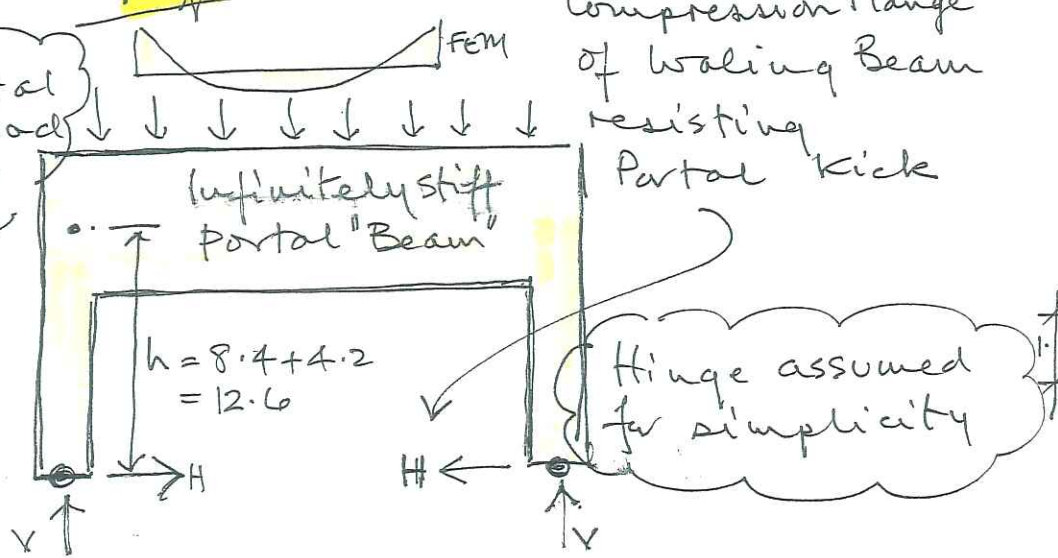 Compression Flange
of Waling Beam
resisting
Portal Kick
FEM
Infinitely stiff
portal "Beam"
h = 8.4+4.2
= 12.6
Hinge assumed
for simplicity
H
H
V
V